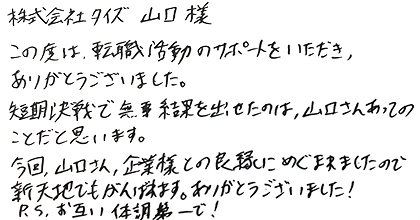 株式会社タイズ 山口様
この度は、転職活動のサポートをいただき,
ありがとうございました。
短期決戦で無事結果を出せたのは,山口さんあっての
ことだと思います。
今回,山口さん,企業様との良縁にめぐまれましたので
新天地でもがんばります。ありがとうございました!
P.S. お互い体調第一で!